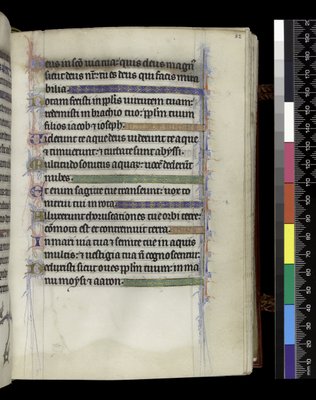 52
Deus in sc̄o uia tua: quis deus magn⁹
sicut deus nr̄: tu es deus qui facis mira
bilia
Notam fecisti in pp̄lis uirtutem tuam:
redemisti in brachio tuo: pp̄lm tuum
filios iacob ⁊ ioseph.
Uiderunt te aque deus uiderunt te aque
⁊ timuerunt: ⁊ turbate sunt abyssi.
Multitudo sonitus aquar̄: uocē dederūt
nubes.
Et enim sagitte tue transeunt: uox to
nitrui tui in rota.
Alluxerunt choruscationes tue orbi terre:
cōmota est et contremuit terra.
In mari uia tua ⁊ semite tue in aquis
multis: ⁊ uestigia tua n̄ cognoscentur.
Deduxisti sicut oues pp̄lm tuum: in ma
nu moysi ⁊ aaron.